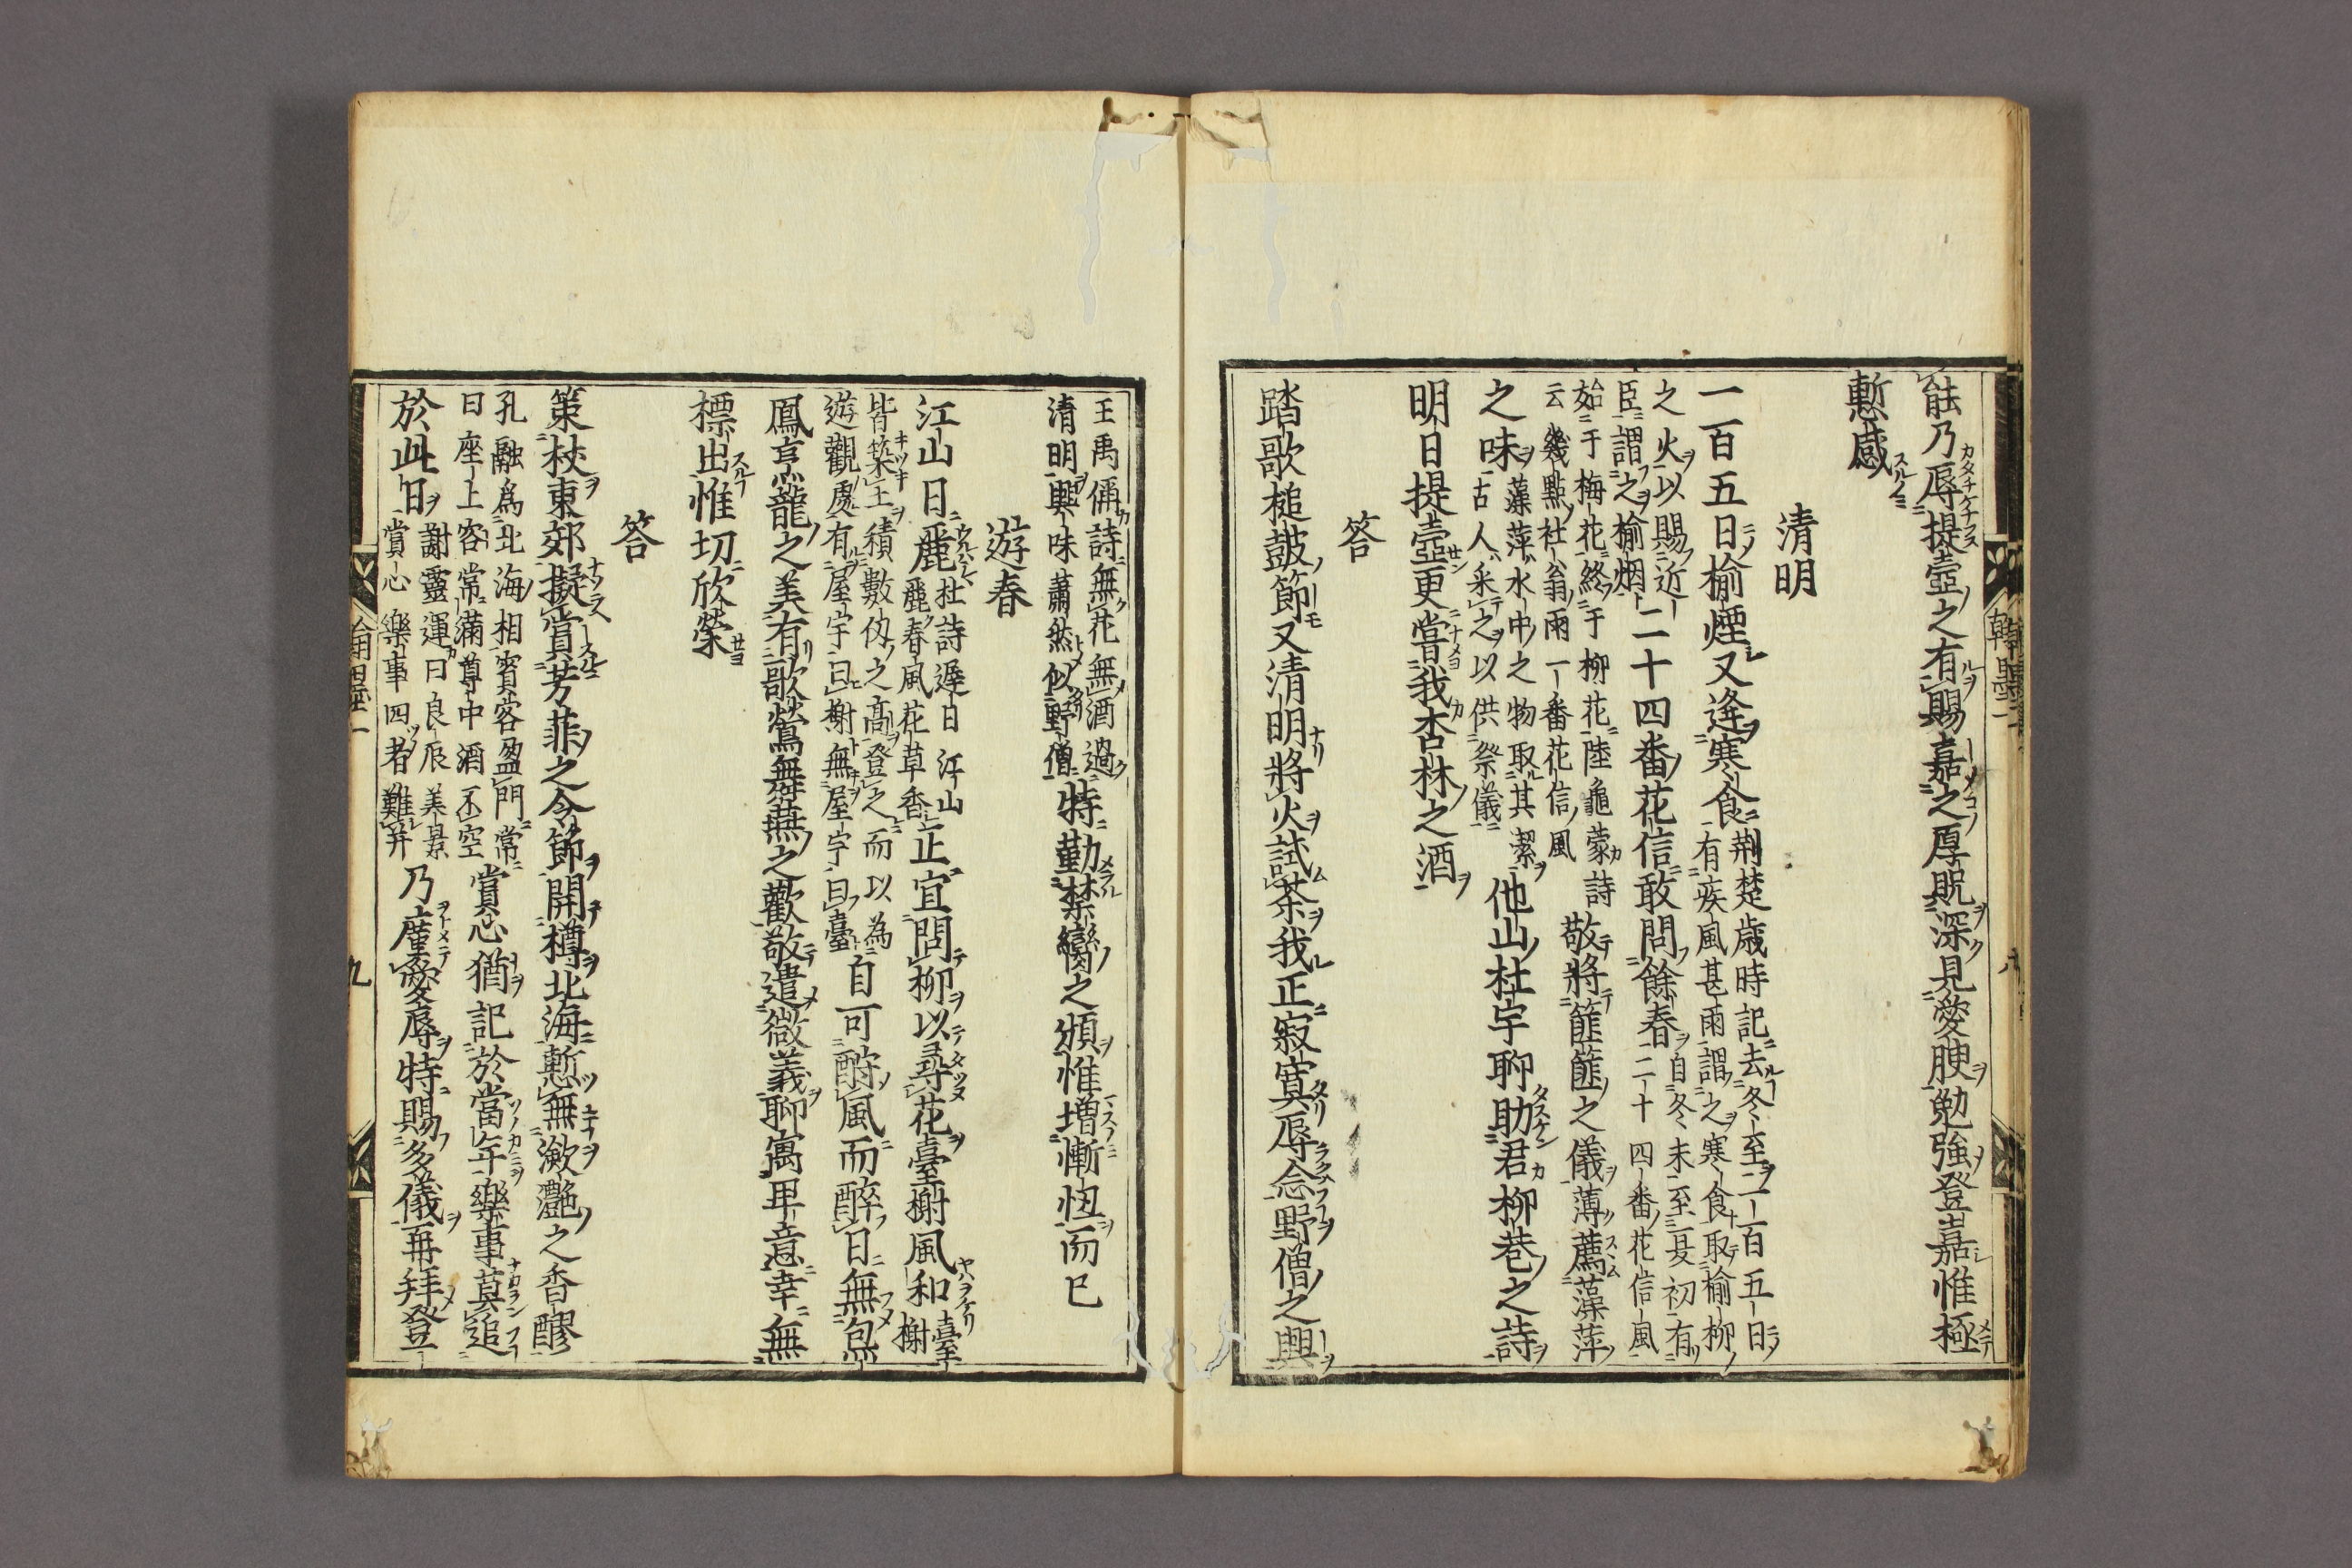 能乃辱提壺之有賜嘉之厚貺深見愛腴勉強登嘉惟極
慙感
清明
一百五日榆煙又逢寒食
荆楚歲時記去冬至一百五日
有疾風甚雨謂之寒食取榆柳
之火以賜近
臣謂之榆烟
二十四番花信敢問餘春
自冬未至夏初有
二十四番花信風
始于梅花終于柳花陸龜蒙詩
云幾點社翁雨一番花信風
敬將篚篚之儀薄薦藻萍
之味
藻萍水中之物取其潔
古人采之以供祭儀
他山杜宇聊助君柳巷之詩
明日提壺更嘗我杏林之酒
答
踏歌槌鼓節又清明將火試茶我正寂寞辱念野僧之興
王禹偁詩無花無酒過
清明興味蕭然似野僧
特勤禁臠之頒惟增慚恧而已
遊春
江山日麗
杜詩遲日江山
麗春風花草香
正宜問柳以尋花臺榭風和
臺榭
皆築土積數仞之高登之而以為
遊觀處有屋宇曰榭無屋宇曰臺
自可酹風而醉日無炰
鳳烹龍之美有歌鶯舞燕之歡敬遣微義聊寓卑意幸無
摽出惟切欣榮
答
策杖東郊擬賞芳菲之令節開樽北海慙無瀲灔之香醪
孔融為北海相賓客盈門常
曰座上客常滿尊中酒不空
賞心猶記於當年樂事莫追
於此日
謝靈運曰良辰美景
賞心樂事四者難并
乃廑愛辱特賜多儀再拜登
翰墨二
八
九